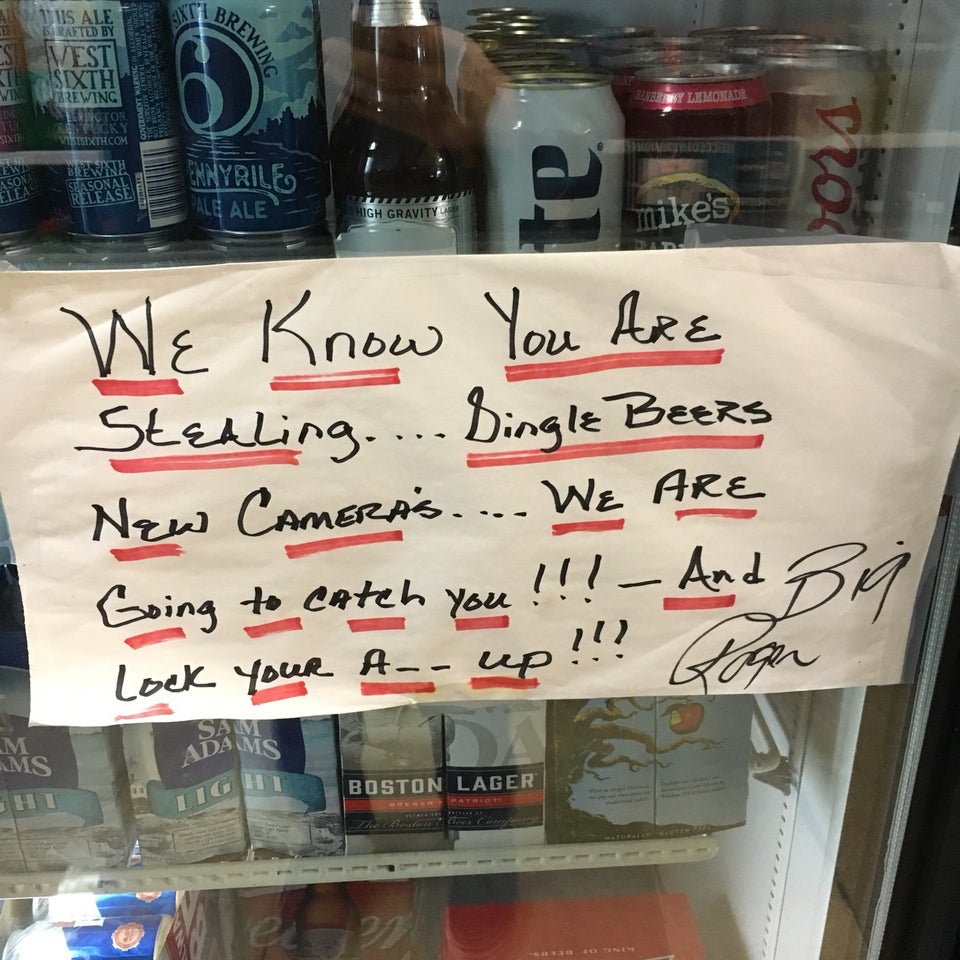 THIS ALE
IS CRAFTED BY
WEST
SIXTH
BREWING
WESTSIXTH.COM
WEST SIXTH
BREWING
SEASONAL
RELEASE
SIXTH BREWING
6
PENNYRILE
PALE ALE
HIGH GRAVITY LAGER
CRANBERRY LEMONADE
mike's
HARD
Coors
We Know You Are
Stealing.... Single Beers
New Camera's.... We Are
Going to catch you!!! — And
Lock your A-- up!!!
Big
Roger
SAM
ADAMS
LIGHT
SAM
ADAMS
LIGHT
BOSTON LAGER
BREWER PATRIOT
The Boston Beer Company
NATURALLY GLUTEN FREE
KING OF BEERS